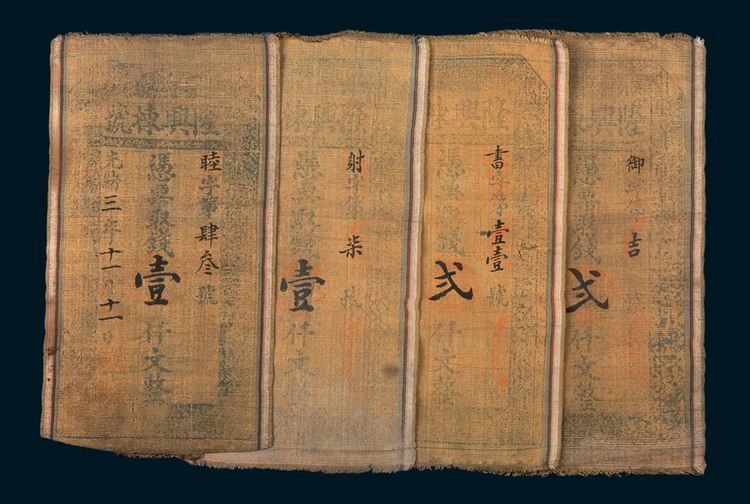 隆興棟號
睦字第肆叁號
憑票取錢壹仟文整
光緒三年十一月十一日
興棟
射字第柒號
憑票取錢壹仟文整
隆興
書字第壹壹號
憑票取錢弍仟文整
隆興
御字第吉
憑票取錢弍仟文整